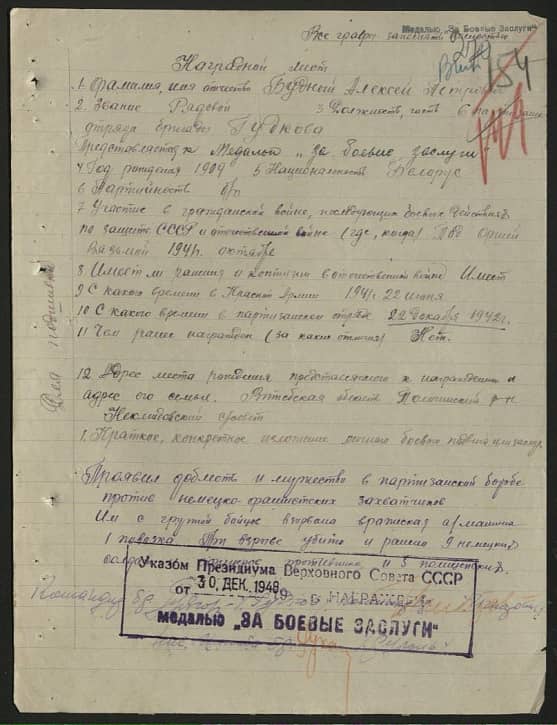 Медалью „За Боевые Заслуги"
Все графы заполнять
Вник 270
154
Наградной лист
1. Фамилия, имя отчество Будний Алексей Петрович
2. Звание Рядовой 3. Должность, часть
отряда бригады Гудкова
Представляется к Медалью „За боевые заслуги"
4 Год рождения 1909 5 Национальность Белорус
6 Партийность б/п
7 Участие в гражданской войне, последующих боевых действиях
по защите СССР и отечественной войне (где, когда) Под
Вязьмой 1941 октябре
8. Имеет ли ранения и контузии в отечественной войне Имеет
9 С какого времени в Красной Армии 1941 22 июня
10 С какого времени в партизанском отряде 22 декабря 1942г.
11 Чем ранее награжден (за какие отличия) Нет.
Для подшивки
12. Адрес места рождения представляемого к награждению и
адрес его семьи. Витебская область Толочинский р-н
сельсовет
1. Краткое, конкретное изложение личных боевых подвигов или заслуг
Проявил доблесть и мужество в партизанской борьбе
против немецко-фашистских захватчиков
Им с группой бойцов взорвана вражеская а/машина
1 повозка При взрыве убито и ранено 9 немецких
солдат и 5 полицейских.
Указом Президиума Верховного Совета СССР
от 30. ДЕК. 1948 19 г. НАГРАЖДЕН
медалью „ЗА БОЕВЫЕ ЗАСЛУГИ"
Командир бр.